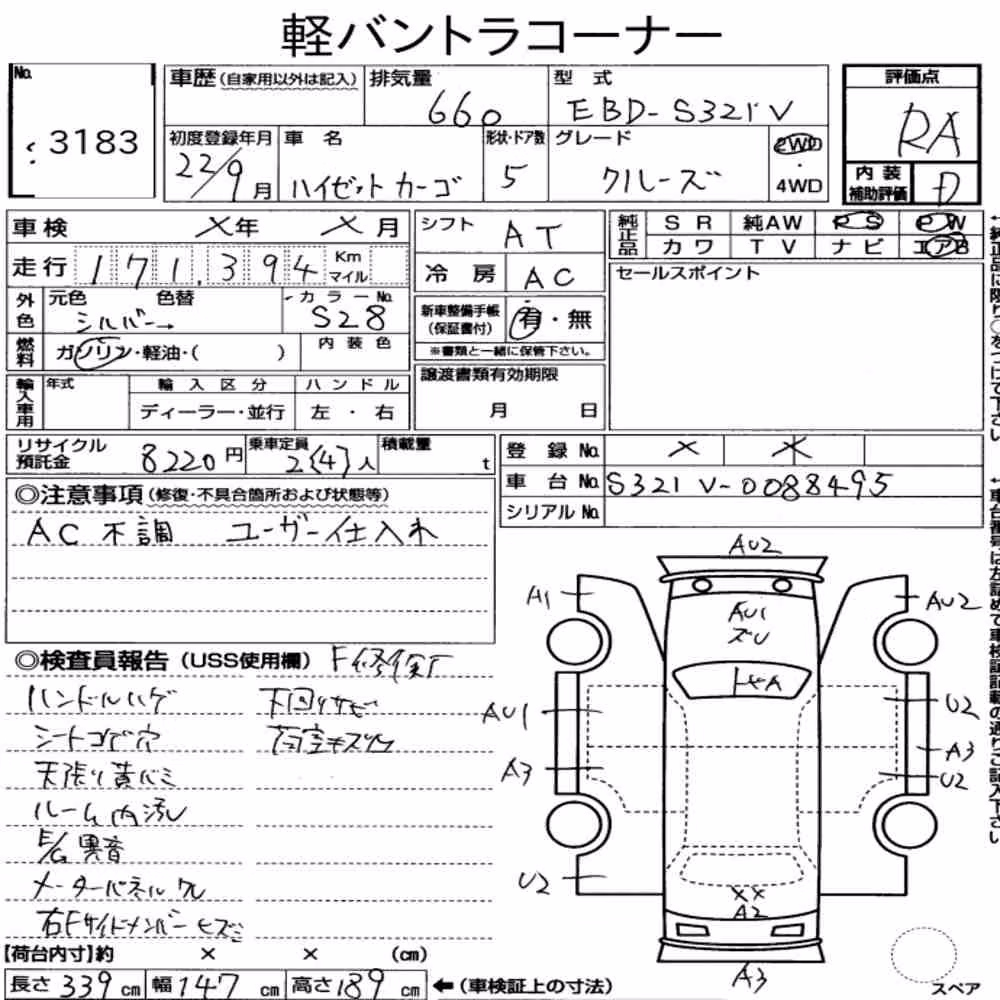 軽バントラコーナー
No. 3183
車歴(自家用以外は記入)
排気量 660
型式 EBD-S321V
評価点 RA
初度登録年月 22/9月
車名 ハイゼットカーゴ
形状・ドア数 5
グレード クルーズ
2WD・4WD
内装補助評価 D
車検 ×年 ×月
シフト AT
純正品 SR 純AW PS PW
カワ TV ナビ エアB
走行 171,394 Km マイル
冷房 AC
セールスポイント
外色 元色 色替 シルバー→
カラーNo. S28
新車整備手帳(保証書付) 有・無
※書類と一緒に保管下さい。
燃料 ガソリン・軽油・( )
内装色
輸入車用 年式 輸入区分 ハンドル
ディーラー・並行 左・右
譲渡書類有効期限
月 日
リサイクル預託金 8220円
乗車定員 2(4)人
積載量 t
登録No. × ×
車台No. S321V-0088495
シリアルNo.
◎注意事項(修復・不具合箇所および状態等)
AC不調 ユーザー仕入れ
◎検査員報告(USS使用欄)
ハンドルハゲ 下回りサビ
シートコゲ穴 荷室キズU
天張り黄バミ
ルーム内汚レ
E/G異音
メーターパネルワレ
右Fサイドメンバーヒズミ
【荷台内寸】約 × × (cm)
長さ339cm 幅147cm 高さ189cm ←(車検証上の寸法)
AU2
A1
AU1
AU2
AU1
U2
A3
A3
U2
U2
××
A2
A3
スペア
←純正品に限り○をつけて下さい
←車台番号は左詰めで車検証記載の通りご記入下さい